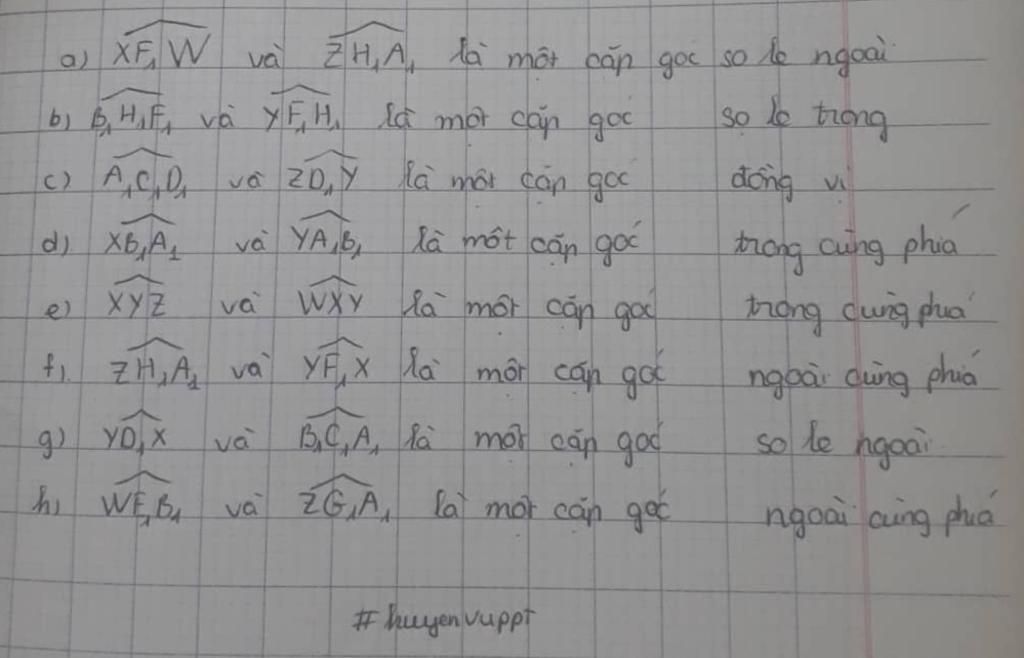 a) XF₁W và ZH₁A₁ là một cặp góc so le ngoài
b) B₁H₁F₁ và YF₁H₁ là một cặp góc so le trong
c) A₁C₁D₁ và ZD₁Y là một cặp góc đồng vị
d) XB₁A₁ và YA₁B₁ là một cặp góc trong cùng phía
e) XYZ và WXY là một cặp góc trong cùng phía
f) ZH₁A₁ và YF₁X là một cặp góc ngoài cùng phía
g) YD₁X và B₁C₁A₁ là một cặp góc so le ngoài
h) WE₁B₁ và ZG₁A₁ là một cặp góc ngoài cùng phía
#huyenvuppt